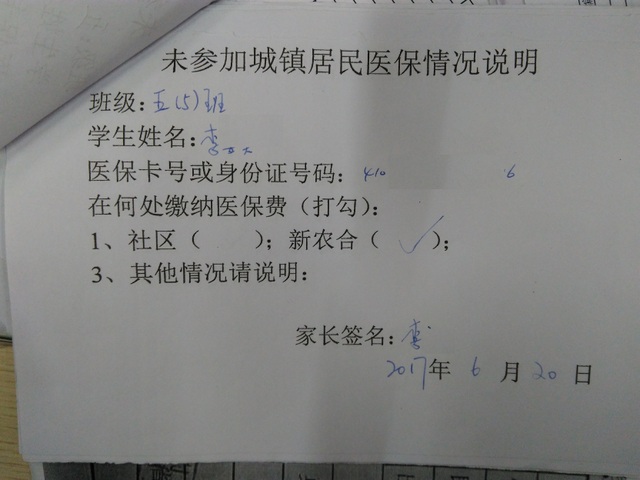 未参加城镇居民医保情况说明
班级：五(5)班
学生姓名：李
医保卡号或身份证号码：410 6
在何处缴纳医保费（打勾）：
1、社区（ ）；新农合（✓）；
3、其他情况请说明：
家长签名：李
2017年 6 月 20 日